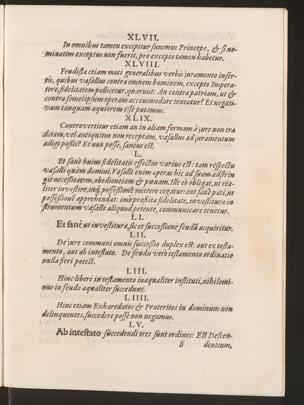 XLVII.
In omnibus tamen excipitur summus Princeps, & si no-
minatim exceptus non fuerit, pro excepto tamen habetur.
XLVIII.
Feudista etiam moti generalibus verbis juramento inser-
tis, quibus vasallus contra omnem hominem, excepto Impera-
tore, fidelitatem pollicetur, quærunt: An contra patriam, ut &
contra semetipsum operam accommodare teneatur? Et negati-
vam tanquam æquiorem esse putamus.
XLIX.
Controvertitur etiam an in aliam formam à jure non tra
ditam, vel antiquitus non receptam, vasallus ad juramentum
adigi possit? Et non posse, sanius est.
L.
Et sanè hujus fidelitatis effectus varius est: tam respectu
vasalli quàm domini. Vasalli enim operas hic ad suam adstrin
git necessitatem, obedientiam & pœnam. Ille
litur investire, inq; possessionē mittere cogatur: aut sanè pati, ut
possessionē apprehendat: investitura in-
strumentum vasallo aliquod petente, communicare tenetur.
LI.
Et sanè ut investitura, sic et successione feudū acquiritur.
LII.
De jure communi omnis successio duplex est: aut ex testa-
mento, aut ab intestato. De feudis verò testamento ordinatio
nulla fieri potest.
LIII.
Hinc liberi in testamento inæqualiter instituti, nihilomi-
nus in feudo æqualiter succedunt.
LIIII.
Hinc etiam Exhæredatos & Præteritos in dominum non
delinquentes, succedere posse non negamus.
LV.
Ab intestato succedendi tres sunt ordines: Est Descen-
B dentium,